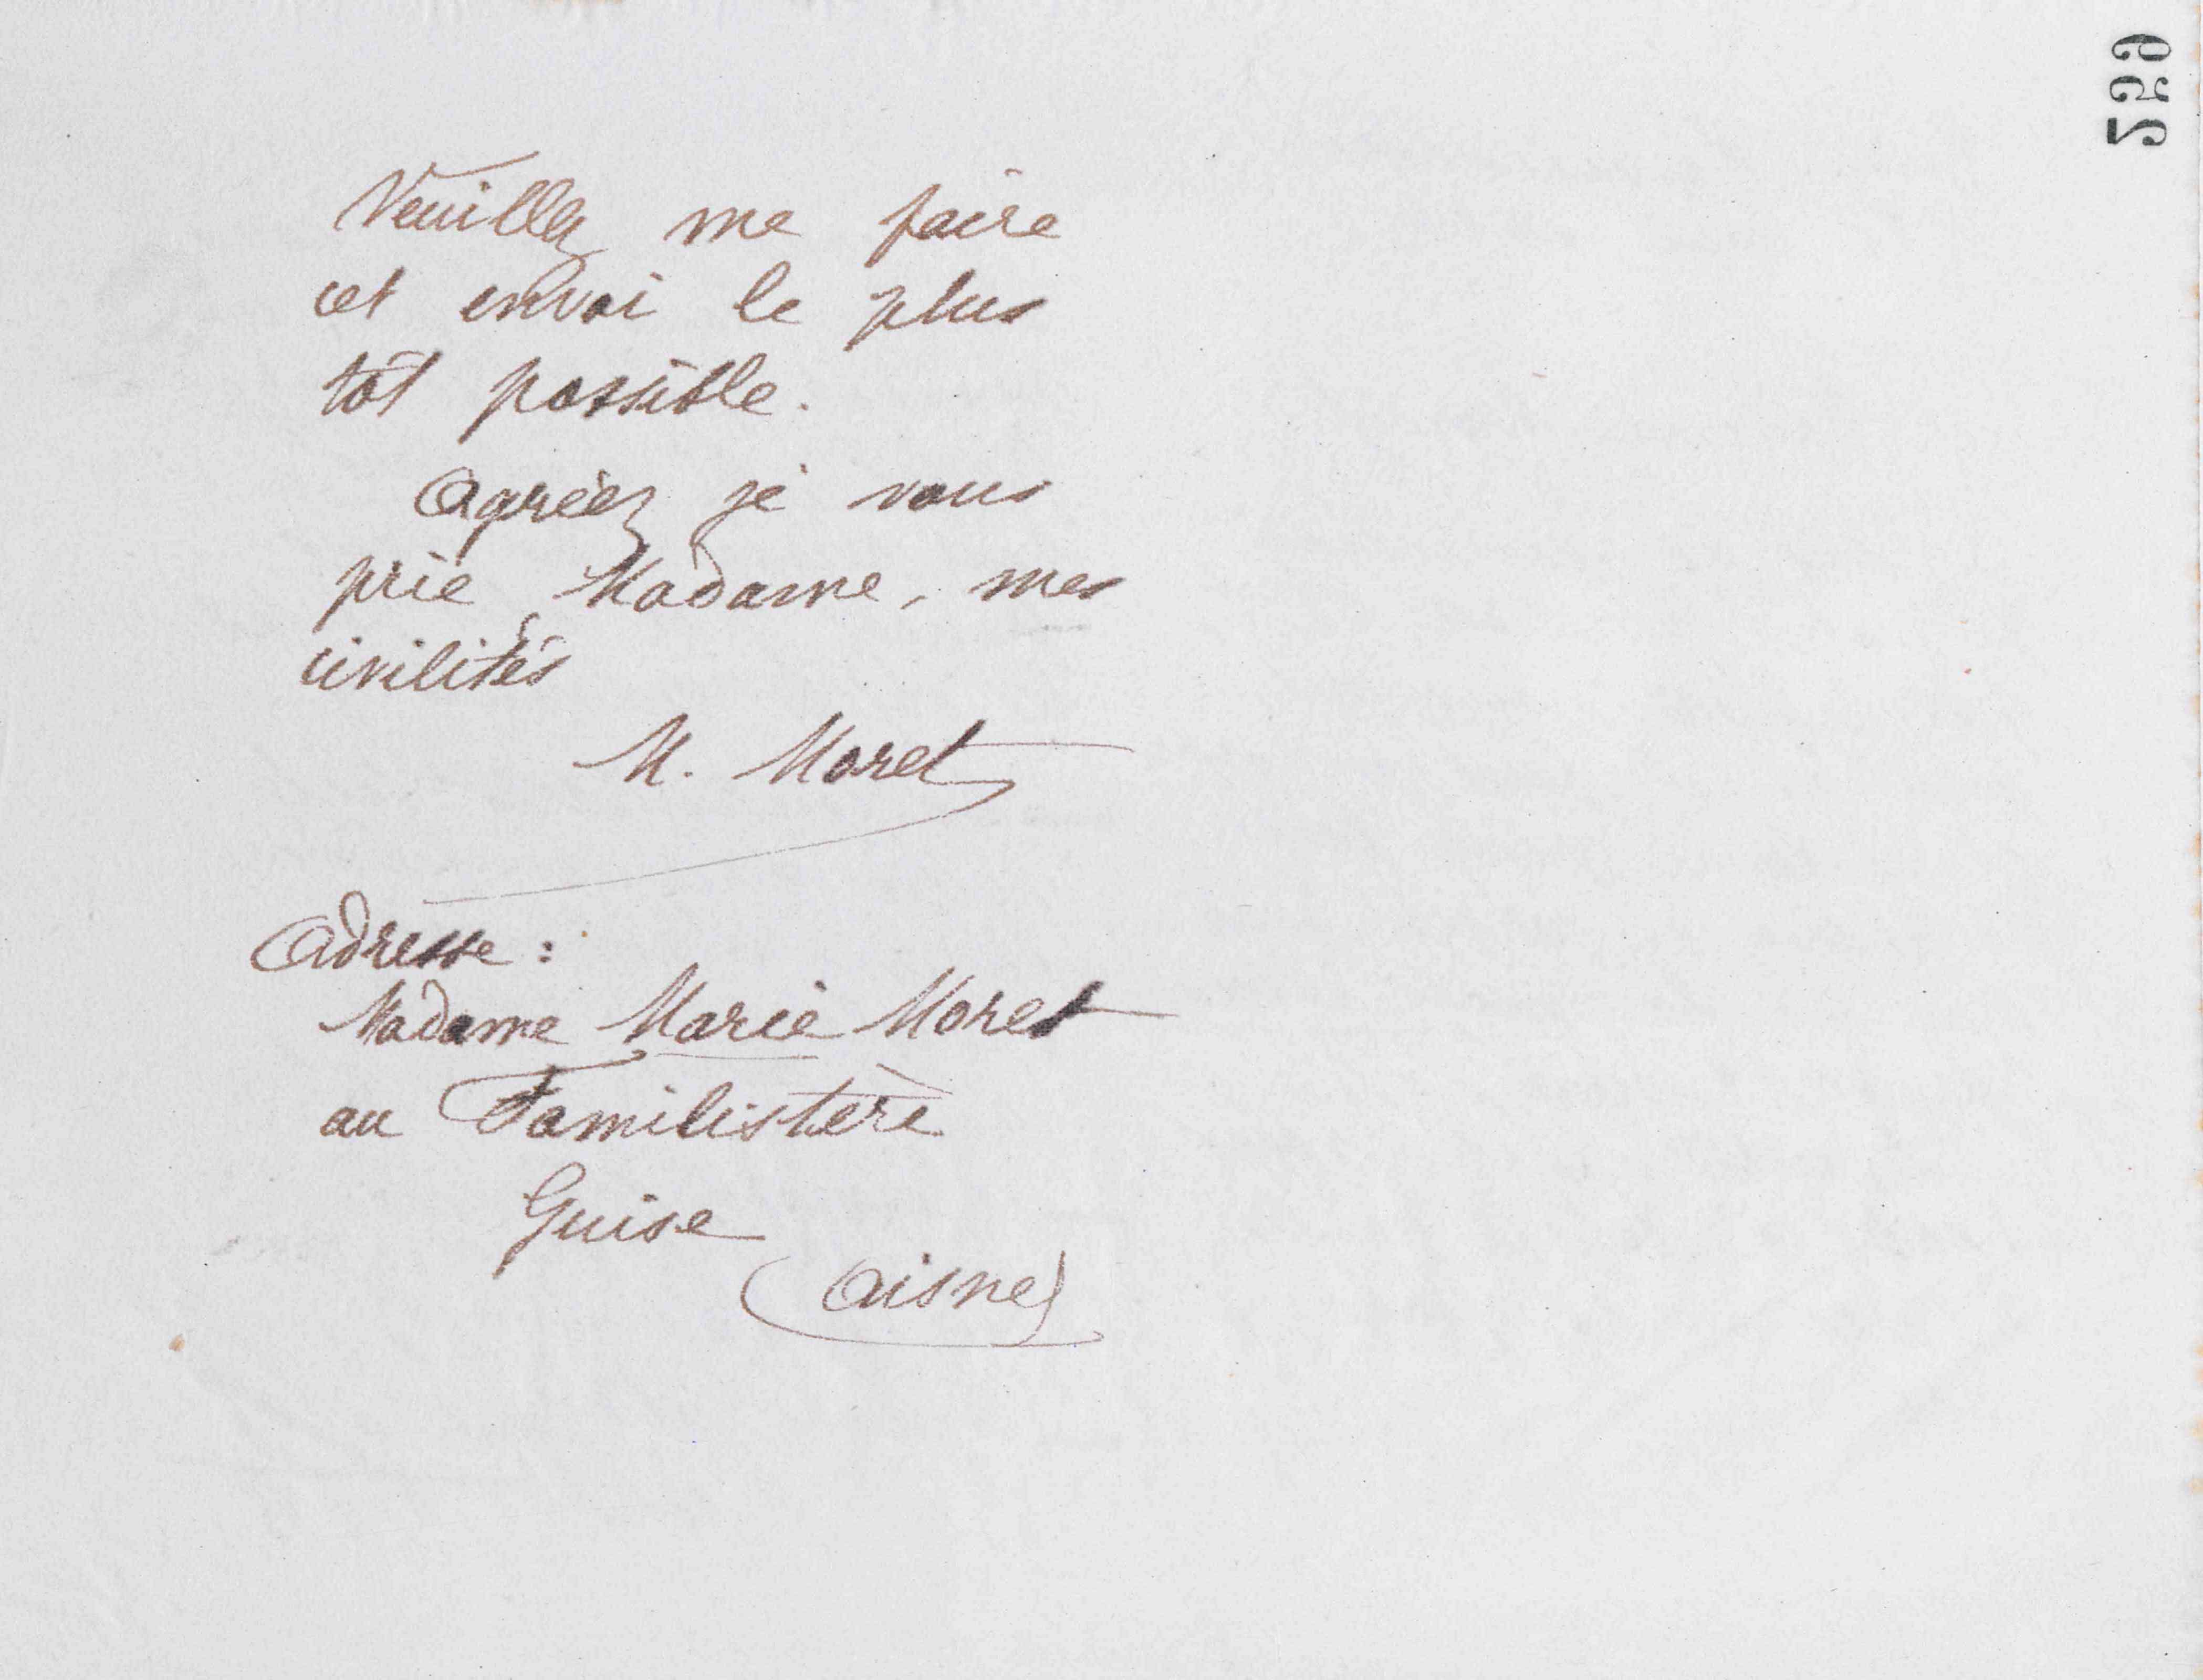 529
Veuillez me faire
cet envoi le plus
tôt possible.
Agréez je vous
prie, Madame, mes
civilités
M. Moret
Adresse :
Madame Marie Moret
au Familistère
Guise
(Aisne)